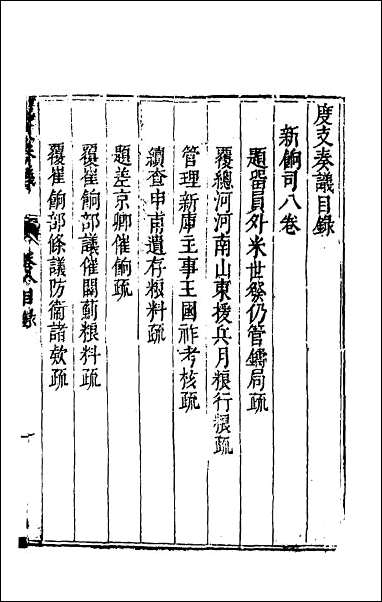 度支奏議目錄
新餉司八卷
題留員外米世發仍管鑄局疏
覆總河河南山東援兵月粮行粮疏
管理新庫主事王國祚考核疏
續查申甫遺存粮料疏
題差京卿催餉疏
覆崔餉部議催關薊粮料疏
覆崔餉部條議防衛諸欵疏
卷八目錄